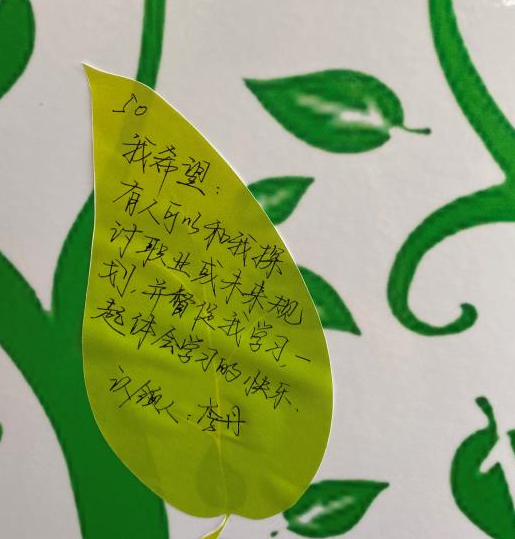 10
我希望:
有人可以和我探
讨职业或未来规
划,并督促我学习,一
起体会学习的快乐.
认领人:李丹